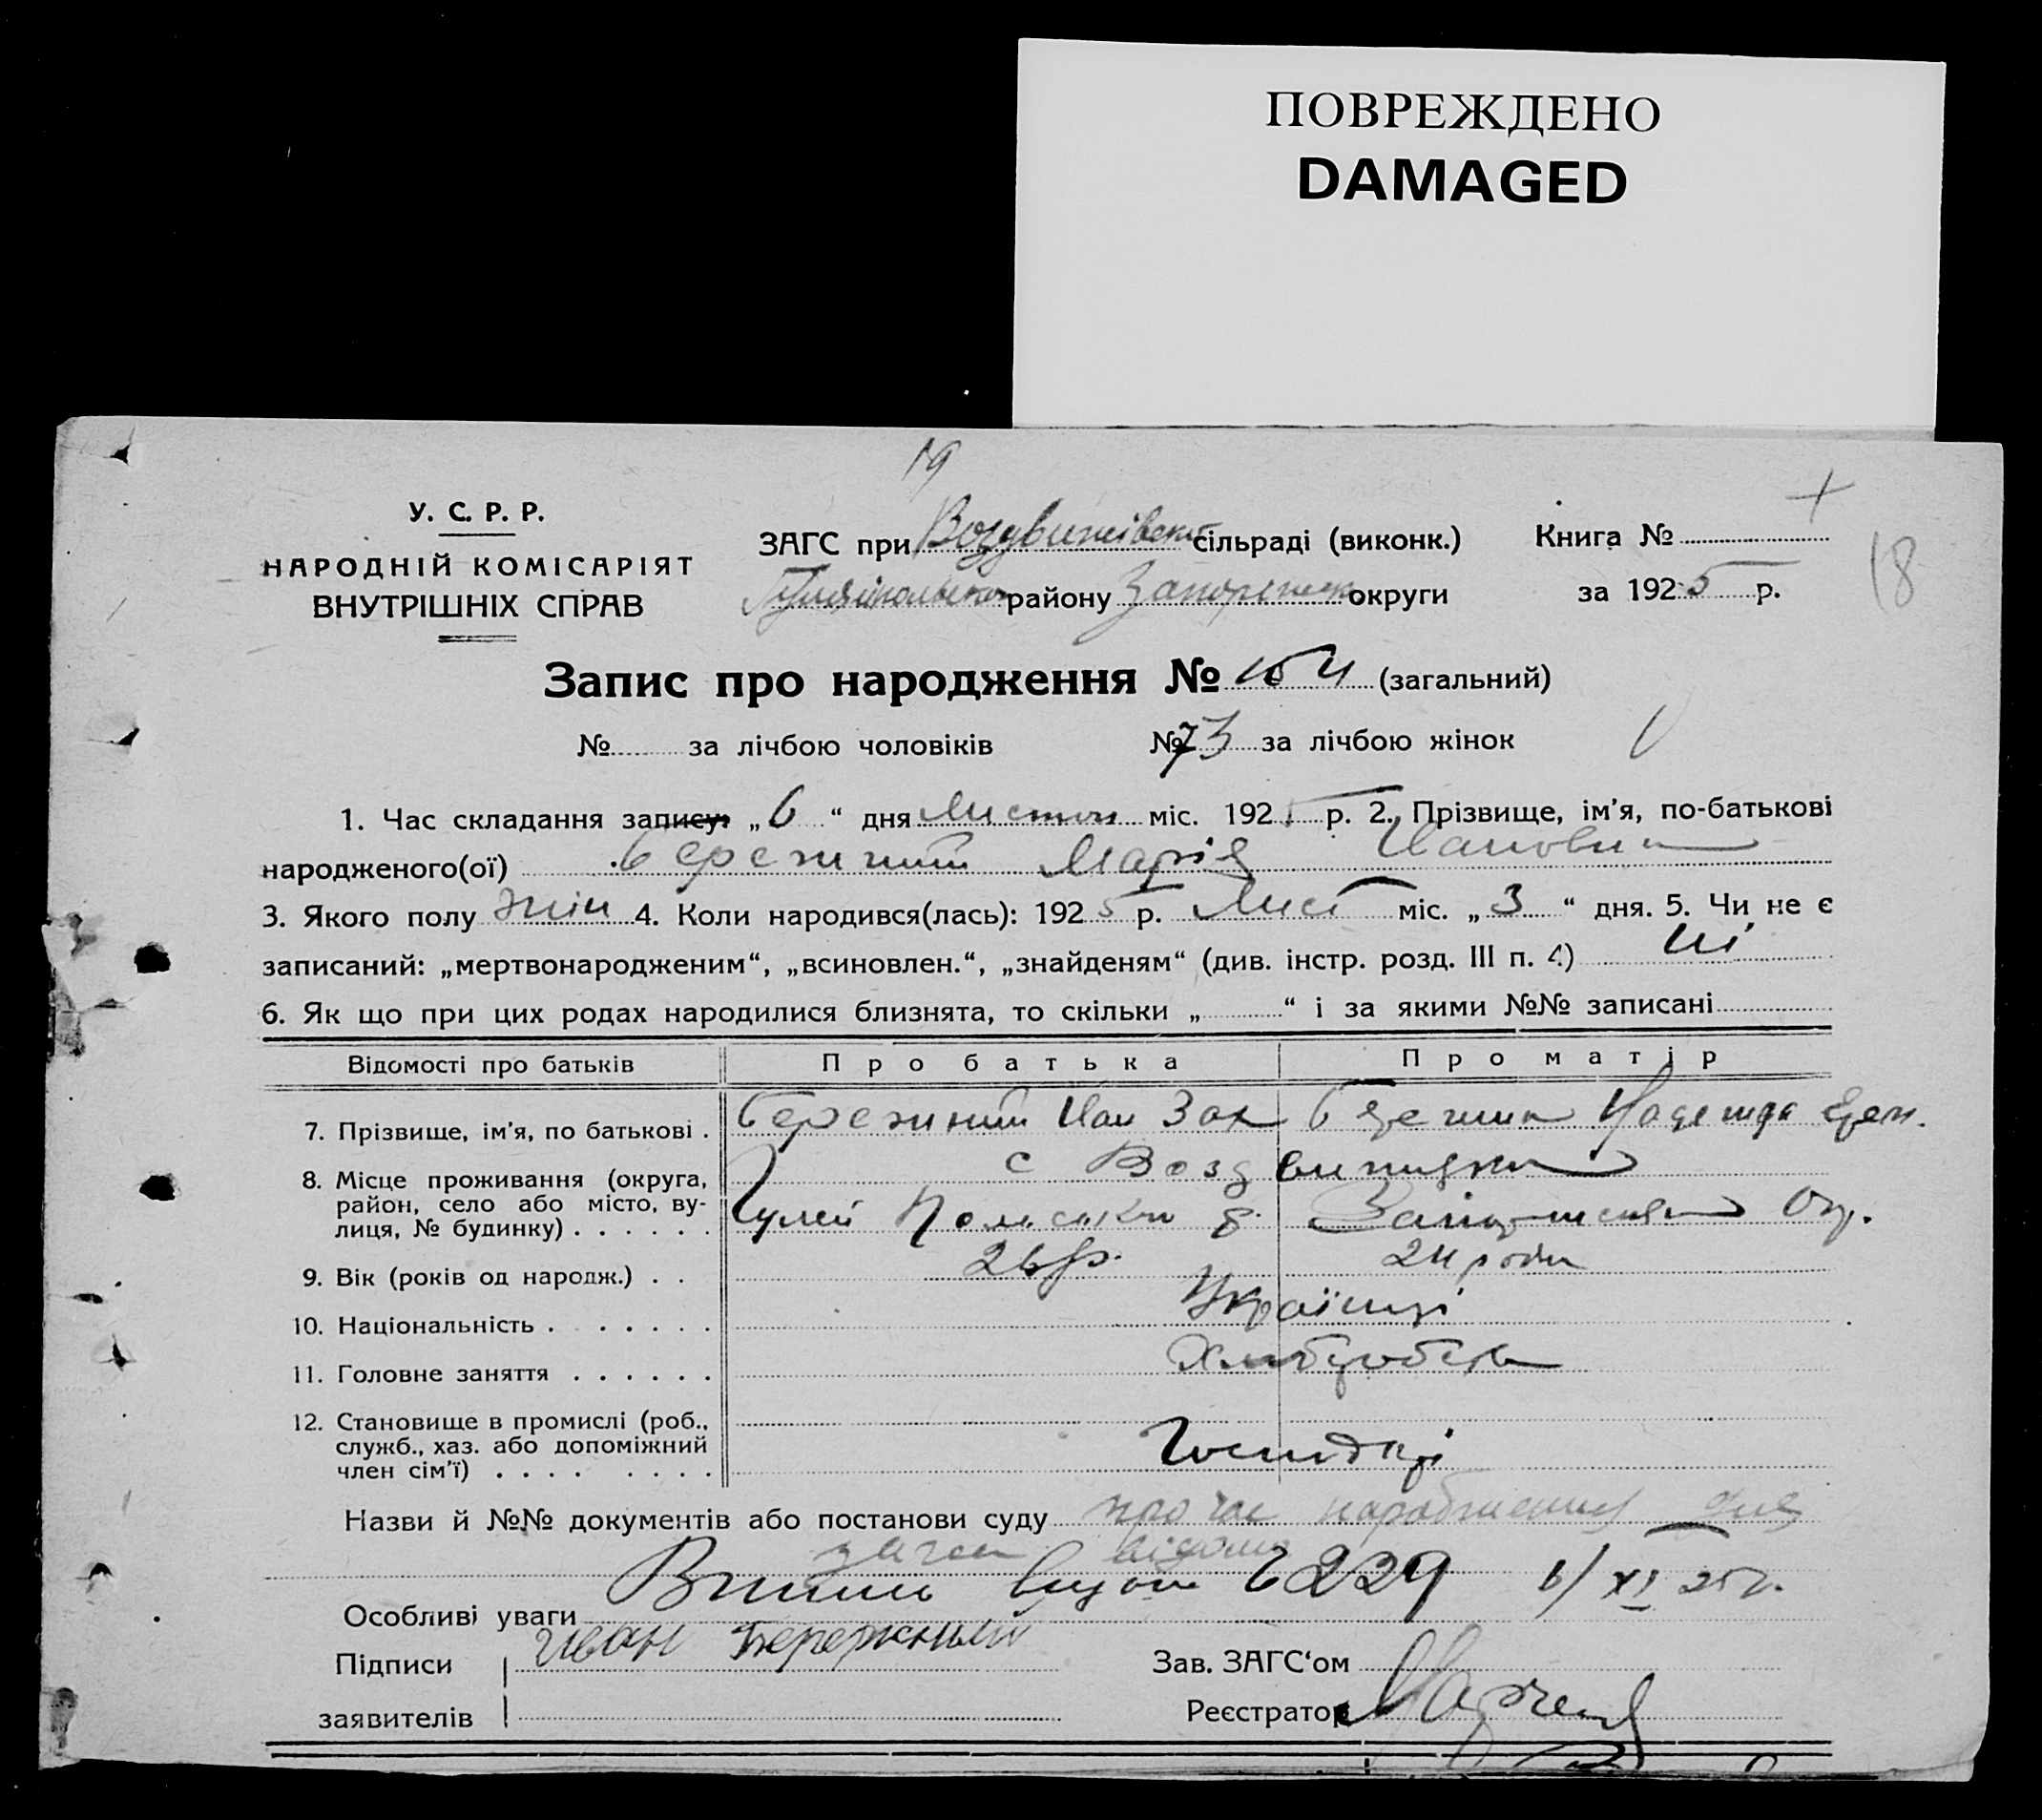 ПОВРЕЖДЕНО
DAMAGED
19
У. С. Р. Р.
НАРОДНІЙ КОМІСАРІЯТ
ВНУТРІШНІХ СПРАВ
ЗАГС при Воздвижівські сільраді (виконк.) Книга №
району округи за 1925 р.
18
Запис про народження № 154 (загальний)
№ за лічбою чоловіків № 73 за лічбою жінок
1. Час складання запису: „6“ дня Листоп міс. 1925 р. 2. Прізвище, ім'я, по-батькові
народженого(ої) Бережний Марія
3. Якого полу жін 4. Коли народився(лась): 1925 р. Лист міс. „3“ дня. 5. Чи не є
записаний: „мертвонародженим“, „всиновлен.“, „знайденям“ (див. інстр. розд. III п. 4) ні
6. Як що при цих родах народилися близнята, то скільки „ “ і за якими №№ записані
Відомості про батьків Про батька Про матір
7. Прізвище, ім'я, по батькові . Бережний Иван Зах Надежда
8. Місце проживання (округа, с Воздвижівка
район, село або місто, ву-
лиця, № будинку) . . . . . . Гуляй Польськ р. Окр.
9. Вік (років од народж.) . . 26 р. 24 роки
10. Національність . . . . . . . Українці
11. Головне заняття . . . . . . Хліборобств
12. Становище в промислі (роб.,
служб., хаз. або допоміжний
член сім'ї) . . . . . . . . Господарі
Назви й №№ документів або постанови суду про час народження
Особливі уваги Випись видана № 229 6/XI 25 г.
Підписи Иван Бережный Зав. ЗАГС‘ом
заявителів Реєстратор